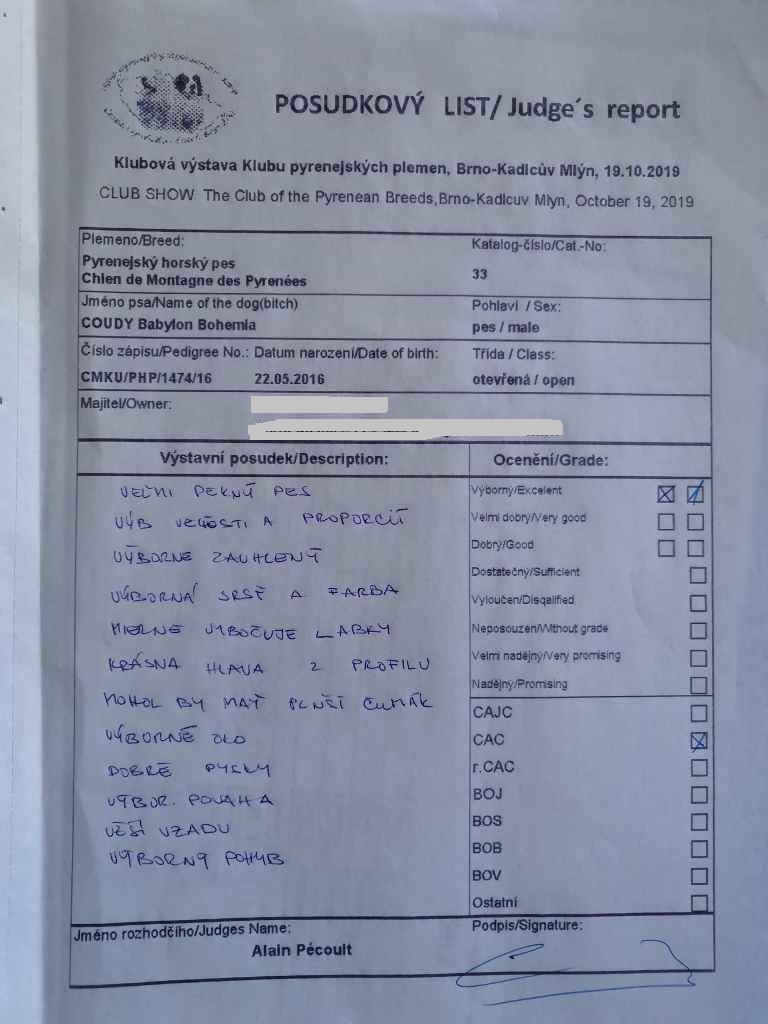 POSUDKOVÝ LIST/ Judge´s report
Klubová výstava Klubu pyrenejských plemen, Brno-Kadlcův Mlýn, 19.10.2019
CLUB SHOW The Club of the Pyrenean Breeds,Brno-Kadlcuv Mlyn, October 19, 2019
Plemeno/Breed:
Katalog-číslo/Cat.-No:
Pyrenejský horský pes
Chien de Montagne des Pyrenées
33
Jméno psa/Name of the dog(bitch)
Pohlaví / Sex:
COUDY Babylon Bohemia
pes / male
Číslo zápisu/Pedigree No.: Datum narození/Date of birth:
Třída / Class:
CMKU/PHP/1474/16 22.05.2016
otevřená / open
Majitel/Owner:
Výstavní posudek/Description:
Ocenění/Grade:
VEĽMI PEKNÝ PES
VÝB VEĽKOSTI A PROPORCIÍ
VÝBORNE ZAUHLENÝ
VÝBORNÁ SRSŤ A FARBA
MIERNE VYBOČUJE LABKY
KRÁSNA HLAVA Z PROFILU
MOHOL BY MAŤ PLNŠÍ ČUMÁK
VÝBORNÉ OKO
DOBRÉ PYSKY
VÝBOR. POVAHA
UŽŠÍ VZADU
VÝBORNÝ POHYB
Výborný/Excelent
Velmi dobrý/Very good
Dobrý/Good
Dostatečný/Sufficient
Vyloučen/Disqalified
Neposouzen/Without grade
Velmi nadějný/Very promising
Nadějný/Promising
CAJC
CAC
r.CAC
BOJ
BOS
BOB
BOV
Ostatní
Jméno rozhodčího/Judges Name:
Podpis/Signature:
Alain Pécoult